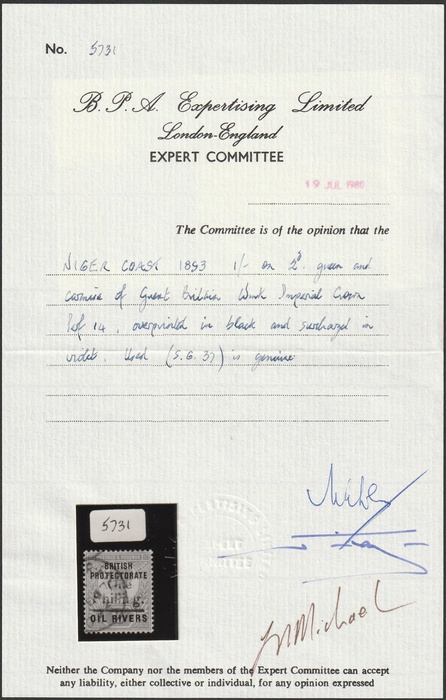 No. 5731
B. P. A. Expertising Limited
London-England
EXPERT COMMITTEE
19 JUL 1980
The Committee is of the opinion that the
NIGER COAST 1893 1/- on 2d. green and
carmine of Great Britain Wmk Imperial Crown
Perf 14, overprinted in black and surcharged in
violet. Used (S.G. 37) is genuine
5731
BRITISH
PROTECTORATE
One
Shilling
OIL RIVERS
Neither the Company nor the members of the Expert Committee can accept
any liability, either collective or individual, for any opinion expressed